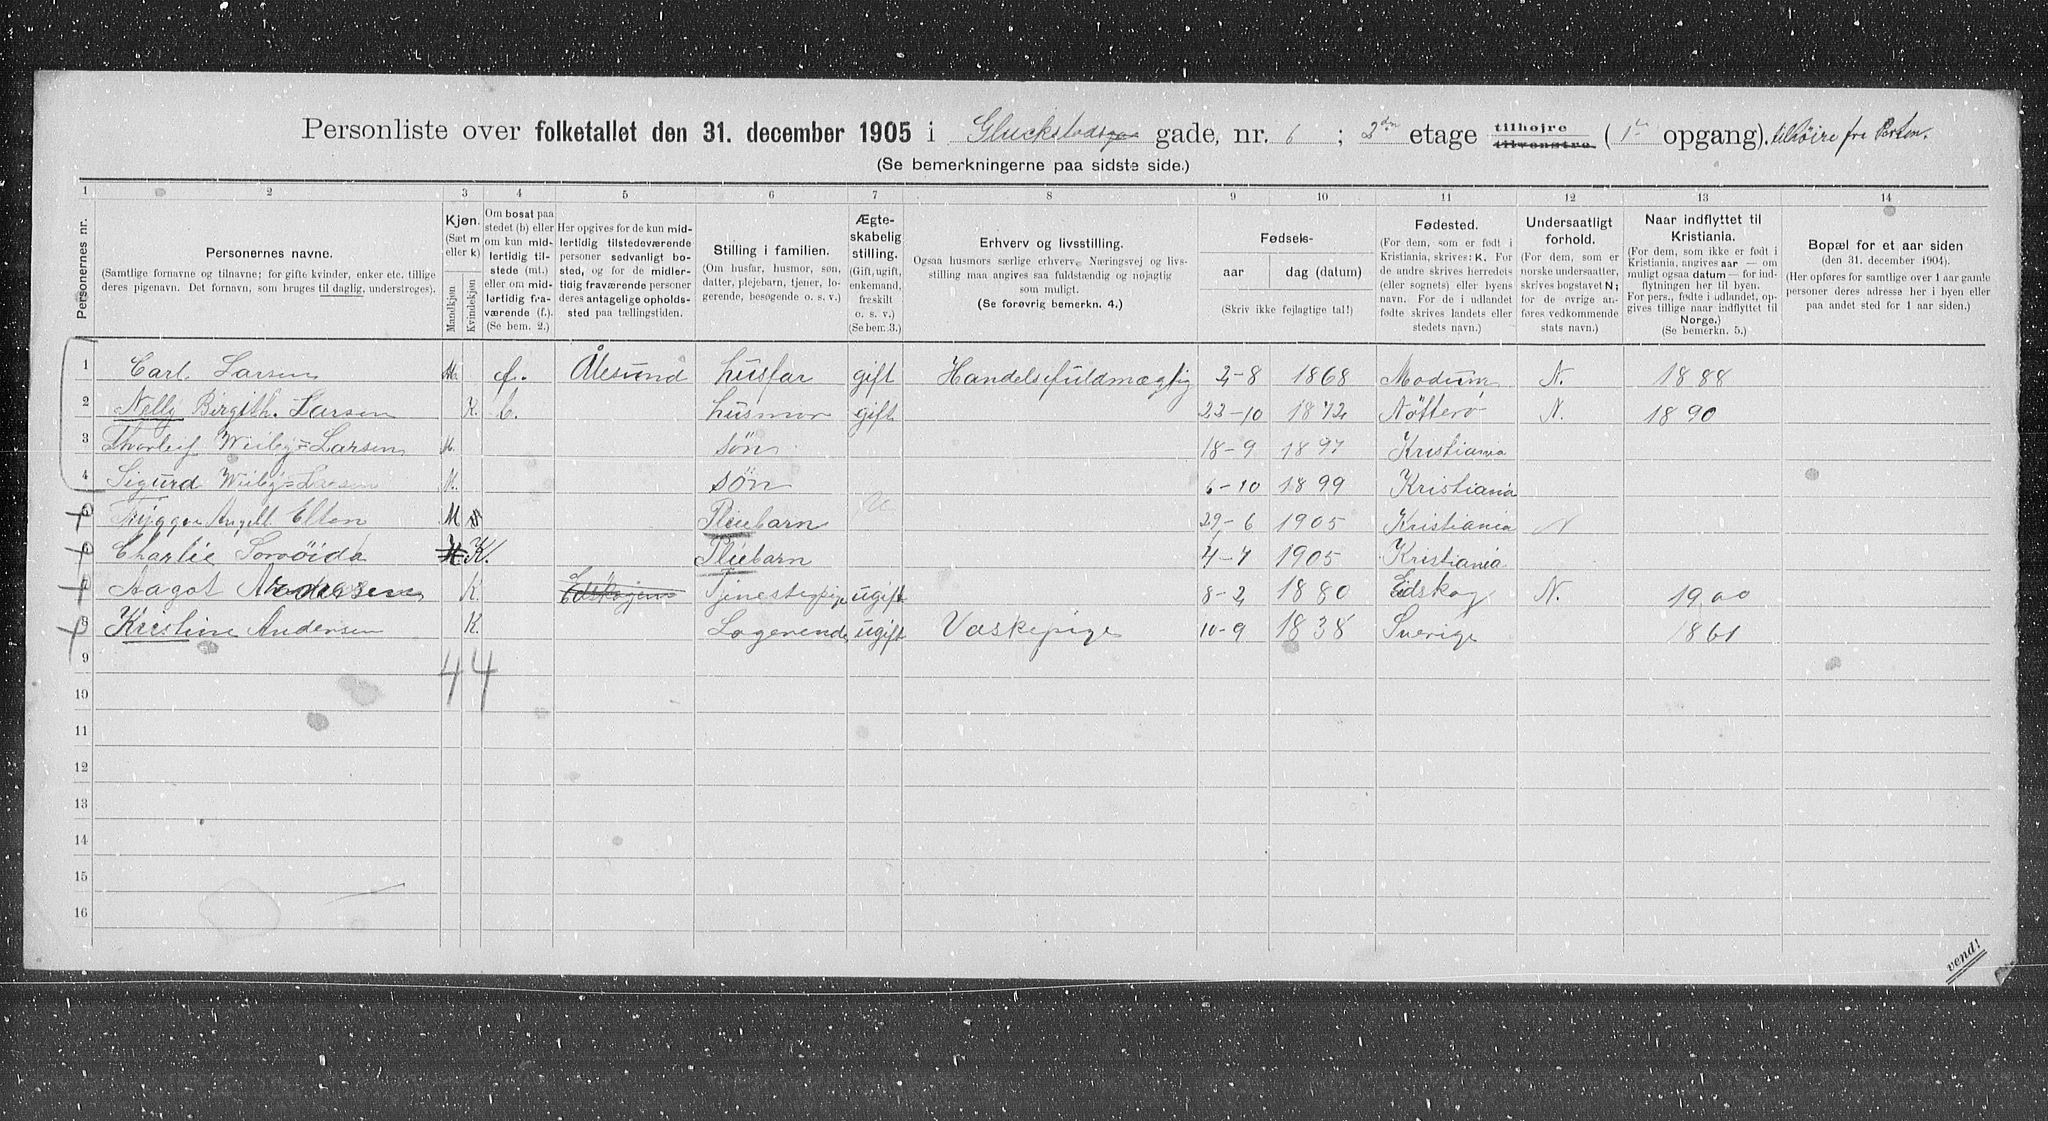 Personliste over folketallet den 31. december 1905 i Gluckstadsgaa gade, nr. 6 ; 2den etage tilhøjre tilvenstre ( 1ste opgang). tilhøire fra Porten.
(Se bemerkningerne paa sidste side.)
1 2 3 4 5 6 7 8 9 10 11 12 13 14
Personernes nr.
Personernes navne.
(Samtlige fornavne og tilnavne; for gifte kvinder, enker etc. tillige deres pigenavn. Det fornavn, som bruges til daglig, understreges).
Kjøn.
(Sæt m eller k)
Mandkjøn
Kvindekjøn
Om bosat paa stedet (b) eller om kun midlertidig tilstede (mt.) eller om midlertidig fraværende (f.). (Se bem. 2.)
Her opgives for de kun midlertidig tilstedeværende personer sedvanligt bosted, og for de midlertidig fraværende personer deres antagelige opholdssted paa tællingstiden.
Stilling i familien.
(Om husfar, husmor, søn, datter, plejebarn, tjener, logerende, besøgende o. s. v.)
Ægteskabelig stilling.
(Gift, ugift, enkemand, fraskilt o. s. v.)
(Se bem. 3.)
Erhverv og livsstilling.
Ogsaa husmors særlige erhverv. Næringsvej og livsstilling maa angives saa fuldstændig og nøjagtig som muligt.
(Se forøvrig bemerkn. 4.)
Fødsels-
aar
dag (datum)
(Skriv ikke fejlagtige tal!)
Fødested.
(For dem, som er født i Kristiania, skrives: K. For de andre skrives herredets (eller sognets) eller byens navn. For de i udlandet fødte skrives landets eller stedets navn.)
Undersaatligt forhold.
(For dem, som er norske undersaatter, skrives bogstavet N; for de øvrige anføres vedkommende stats navn.)
Naar indflyttet til Kristiania.
(For dem, som ikke er født i Kristiania, angives aar — om muligt ogsaa datum — for indflytningen her til byen. For pers., fødte i udlandet, opgives tillige naar indflyttet til Norge.)
(Se bemerkn. 5.)
Bopæl for et aar siden
(den 31. december 1904).
(Her opføres for samtlige over 1 aar gamle personer deres adresse her i byen eller paa andet sted for 1 aar siden.)
1 Carl Larsen M. f. Ålesund husfar gift Handelsfuldmægtig 2-8 1868 Modum N. 1888
2 Nelly Birgith. Larsen K. b. husmor gift 22-10 1872 Nøtterø N. 1890
3 Thorleif Wiiby=Larsen M. søn 18-9 1897 Kristiania
4 Sigurd Wiiby=Larsen M. søn 6-10 1899 Kristiania
5 Trygve Angell Elton M Pleiebarn U 29-6 1905 Kristiania N
6 Charlie K. Pleiebarn 4-7 1905 Kristiania
7 Aagot Andersen K. Edskogen Tjenestepige ugift 8-2 1880 Eidskog N. 1900
8 Kristine Andersen K. Logerende ugift Vaskepige 10-9 1838 Sverige 1861
9 4 4
10
11
12
13
14
15
16
vend!